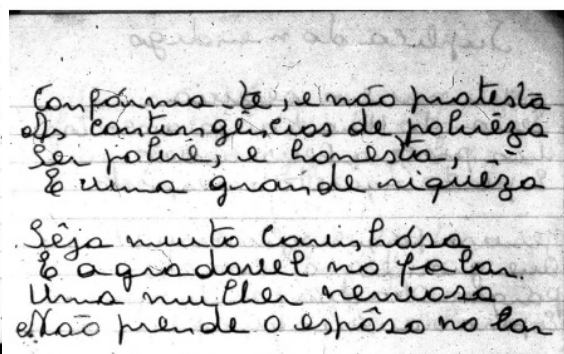 Suplica do mendigo
Confórma-te, e não protesta
As contingências de pobrêza
Ser pobre, e honesta,
É uma grande riquêza
Sêja muito carinhósa
E agradavel no falar.
Uma mulher nervosa
Não prende o espôso no lar